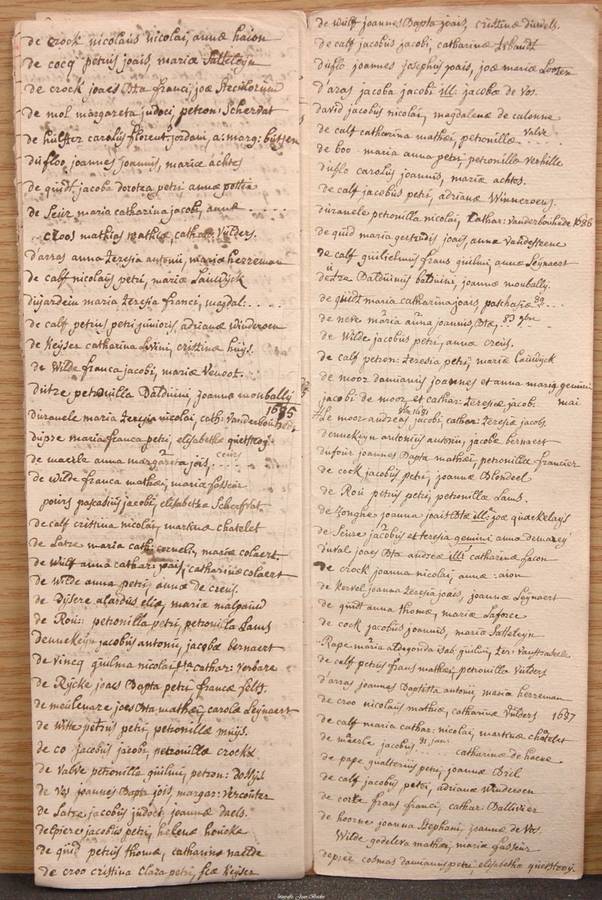 de crock nicolaus nicolai, annæ haion
de cocq petrus joais, mariæ Salteleyn
de crock joaes Bta franci, joæ Stecheloryn
de mol margareta judoci petron: Schervat
de hulster carolus florent: jordani, a: marg: butsen
dufloo, joannes joannis, mariæ achtes
de quidt jacoba dorotea petri annæ pottin
de Seur maria catharina jacobi, annæ
cloos mathias mathiæ, cathar: Vulders.
d'arras anna Teresia antonii, mariæ herreman
de calf nicolaus petri, mariæ Lauwyck
dujardein maria Teresia franci, magdal....
de calf petrus petri junioris, adrianæ winderoen
de Keyser catharina Livini, cristinæ huys.
de Wilde franca jacobi, mariæ Venoot.
dutze petronilla Balduini, joanna moubally
1685
duranele maria Teresia nicolai, cath: Vanderbouhede
dupre maria franca petri, elisabetha questroy
de maerle anna margareta jois,
de wilde franca mathei, maria fasseur
poirs pascasius jacobi, elisabetha Scherfvat.
de calf cristina nicolai, martinæ chatelet
de Latre maria cath: cornelii, mariæ colaert
de Wulf anna cathari: joais, catharinæ colaert
de Wilde anna petri, annæ de creus.
de Dysere alardus eliæ, mariæ malpaud
de Rou: petronilla petri, petronilla Lams
dennekeyn jacobus antonii, jacobæ bernaert
de vincq guilma nicolai, cathar: Verbare
de Rycke joaes Bapta petri francæ fels.
de meulenare joaes Bta mathei, carolæ Leynaert
de witte petrus petri, petronillæ muys.
de co jacobus jacobi, petronillæ crockx
de Valve petronilla guilmi, petron: Dollys
de Vos joannes Bapta jois margar: Vercouter
de Latre jacobus judoci, joannæ duels.
delpiere jacobus petri, helenæ houcke
de quidt petrus thomæ, catharinæ naelde
de croo cristina clara petri, Keyser
de wulf joannes Bapta joais, cristinæ duwels.
de calf jacobus jacobi, catharinæ
duflo joannes josephus joais, joæ mariæ Looten
d'aras jacoba jacobi ill: jacobæ de Vos.
david jacobus nicolai, magdalenæ de calonne
de calf catharina mathei, petronillæ Valve
de boo maria anna petri, petronilla Verhille
duflo carolus joannis, mariæ achtes.
de calf jacobus petri, adrianæ Winneroens.
duranele petronilla nicolai, Cathar: Vanderbouhede 1686
de quid maria gertrudis joais, anna Vandesteene
de calf guilielmus frans guilmi, annæ Leynaert
dutze Balduinus balduini, joannæ moubally.
de quidt maria catharina joais, paschasiæ 89
de neve maria anna joannis Btæ, 83 9bre
de Wilde jacobus petri, anna creus.
de calf petron: Teresia petri, mariæ Lauwyck
de moor damianus joannes et anna maria gemini
jacobi de moor et cathar: Teresiæ jacob mai
1681
Le moor andreas jacobi, cathar: Teresiæ jacobs
dennekeyn antonius antonii, jacobæ bernaert
dufour joannes Bapta mathei, petronilla francier
de cock jacobus petri, joannæ Blondeel
de Rou petrus petri, petronillæ Lams.
de Longhe joanna joais Btæ ill: joæ quaekelays
de Seure jacobus et teresia gemini, annæ
duval joaes Bta andreæ ill: catharinæ facon
de crock joanna nicolai, annæ aion
de Kervel joanna Teresia joais, joannæ Leynaert
de quidt anna thomæ, mariæ Laforce
de cock jacobus joannis, maria Salteleyn
Rape maria aldegonda
de calf petrus frans mathei, petronilla Vulders
d'aras joannes Baptista antonii, maria herreman
de croo nicolaus mathiæ, catharinæ Vulders 1687
de calf maria cathar: nicolai, martinæ châtelet
de maerle jacobus, 31 jan: catharinæ de haene
de pape gualterius petri, joannæ Bril
de calf jacobus petri, adrianæ winderoen
de corte frans franci, cathar: Ballivier
de hoorne joanna Stephani, joannæ de Vos.
Wilde godeleva mathei, maria fasseur
depree cosmas damianus petri, elisabetha questroy.